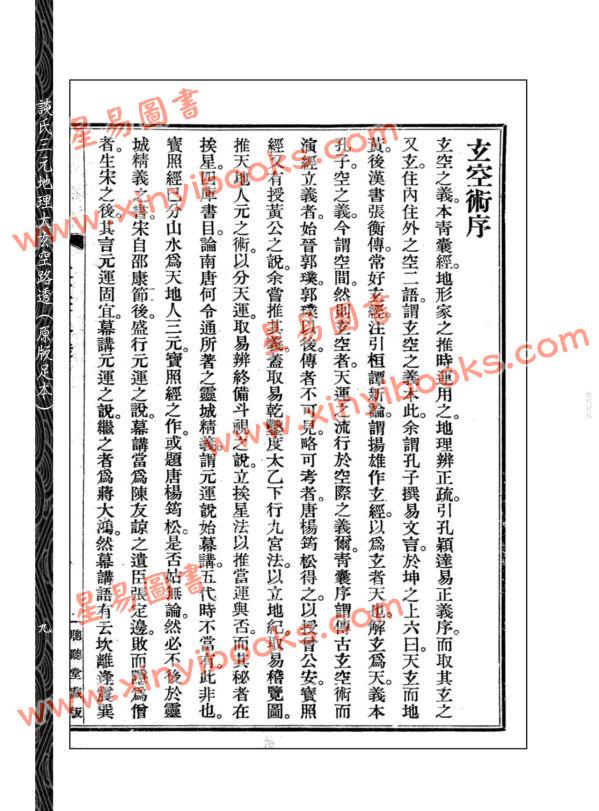 玄空術序
玄空之義本青囊經。地形家之推時運用之。地理辨正疏。引孔穎達易正義序。而取其玄之
又玄住內住外之空二語。謂玄空之義本此。余謂孔子撰易文言。於坤之上六曰。天玄而地
黃。後漢書張衡傳。常好玄經。注引桓譚新論。謂揚雄作玄經。以爲玄者天也。解玄爲天義本
孔子。空之義。今謂空間。然則玄空者。天運之流行於空際之義爾。青囊序謂傳古玄空術而
演經立義者。始晉郭璞。郭璞以後。傳者不可見。略可考者。唐楊筠松得之。以授曾公安。寶照
經又有授黃公之說。余嘗推其義。蓋取易乾鑿度太乙下行九宮法。以立地紀。取易稽覽圖。
推天地人元之術。以分天運。取易辨終備斗覗之說。立挨星法。以推當運與否。而其秘者在
挨星。四庫書目論南唐何令通所著之靈城精義。謂元運說始幕講。五代時不當有。此非也。
寶照經已分山水爲天地人三元。寶照經之作。或題唐楊筠松。是否姑無論。然必不後於靈
城精義之書。宋自邵康節後。盛行元運之說。幕講當爲陳友諒之遺臣張定邊。敗而隱爲僧
者。生宋之後。其言元運固宜。幕講元運之說。繼之者爲蔣大鴻。然幕講語有云。坎離逢震巽
談氏三元地理大玄空路透(原版足本)
九
聽聽堂
星易圖書
www.xinyibooks.com
星易圖書
www.xinyibooks.com
星易圖書
www.xinyibooks.com